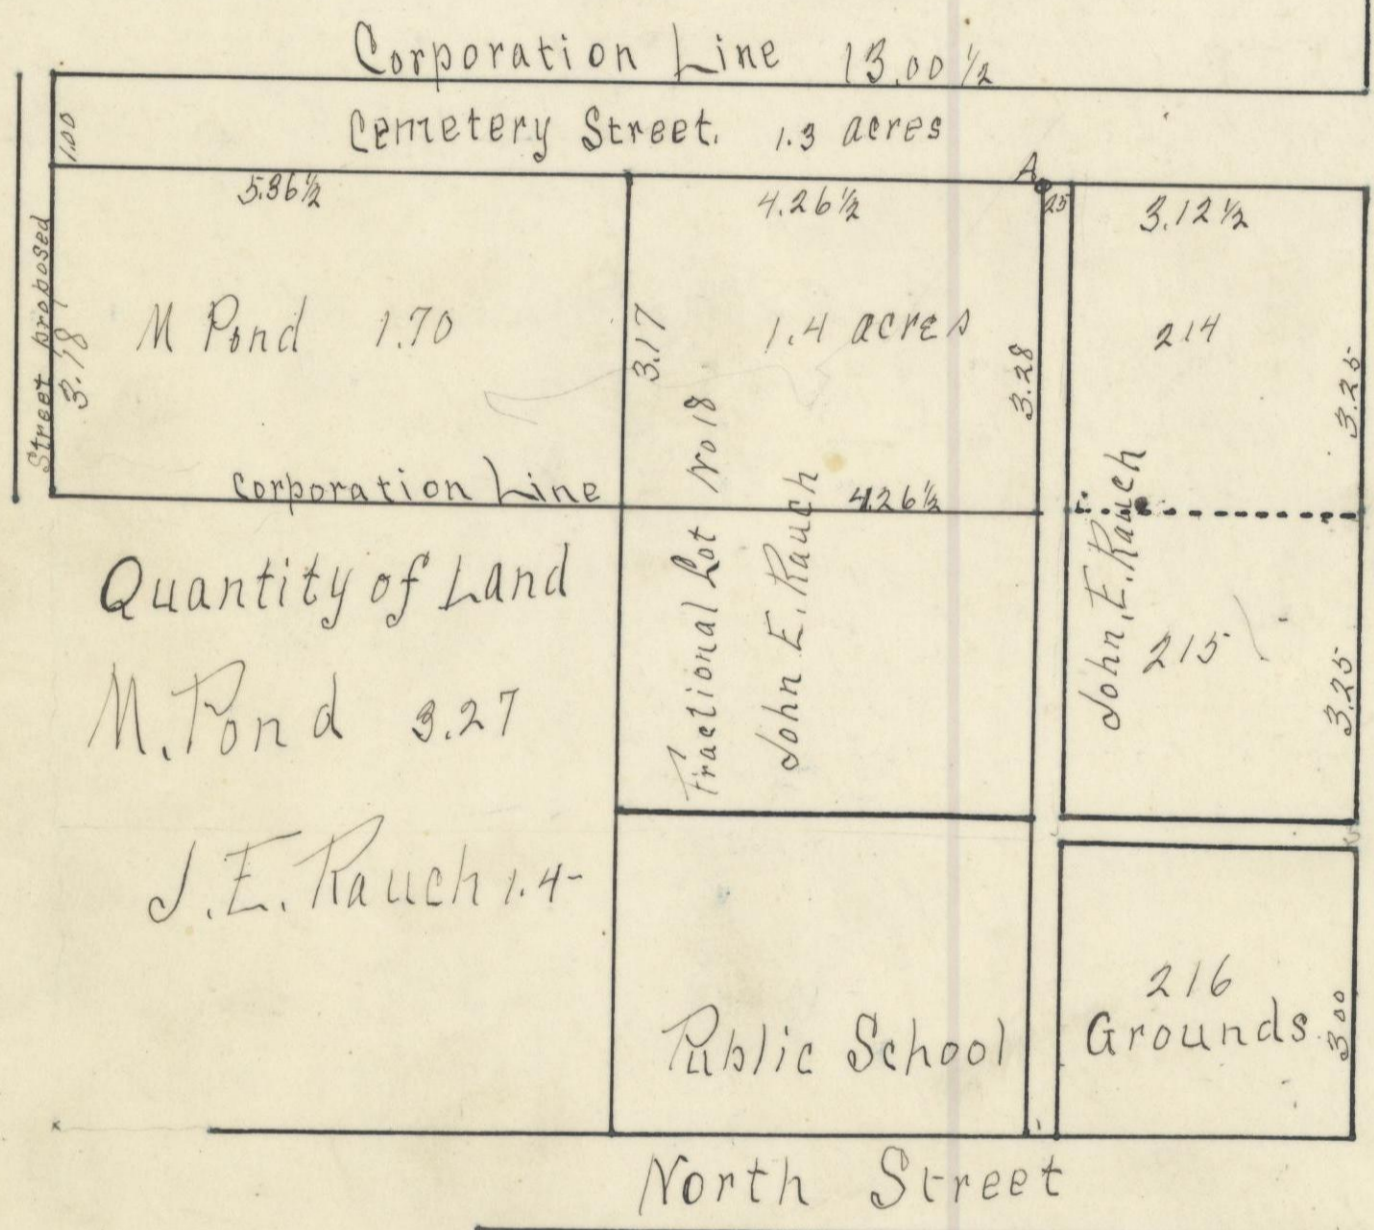 Corporation Line 13.00 ½
Cemetery Street. 1.3 acres
1.00
A
5.36½
4.26½
25
3.12½
Street proposed
3.18
M Pond 1.70
3.17
1.4 acres
3.28
214
3.25
Corporation Line
4.26½
Fractional Lot No 18
John E. Rauch
John, E. Rauch
215
3.25
Quantity of Land
M. Pond 3.27
J. E. Rauch 1.4-
Public School
216
Grounds
3.00
North Street